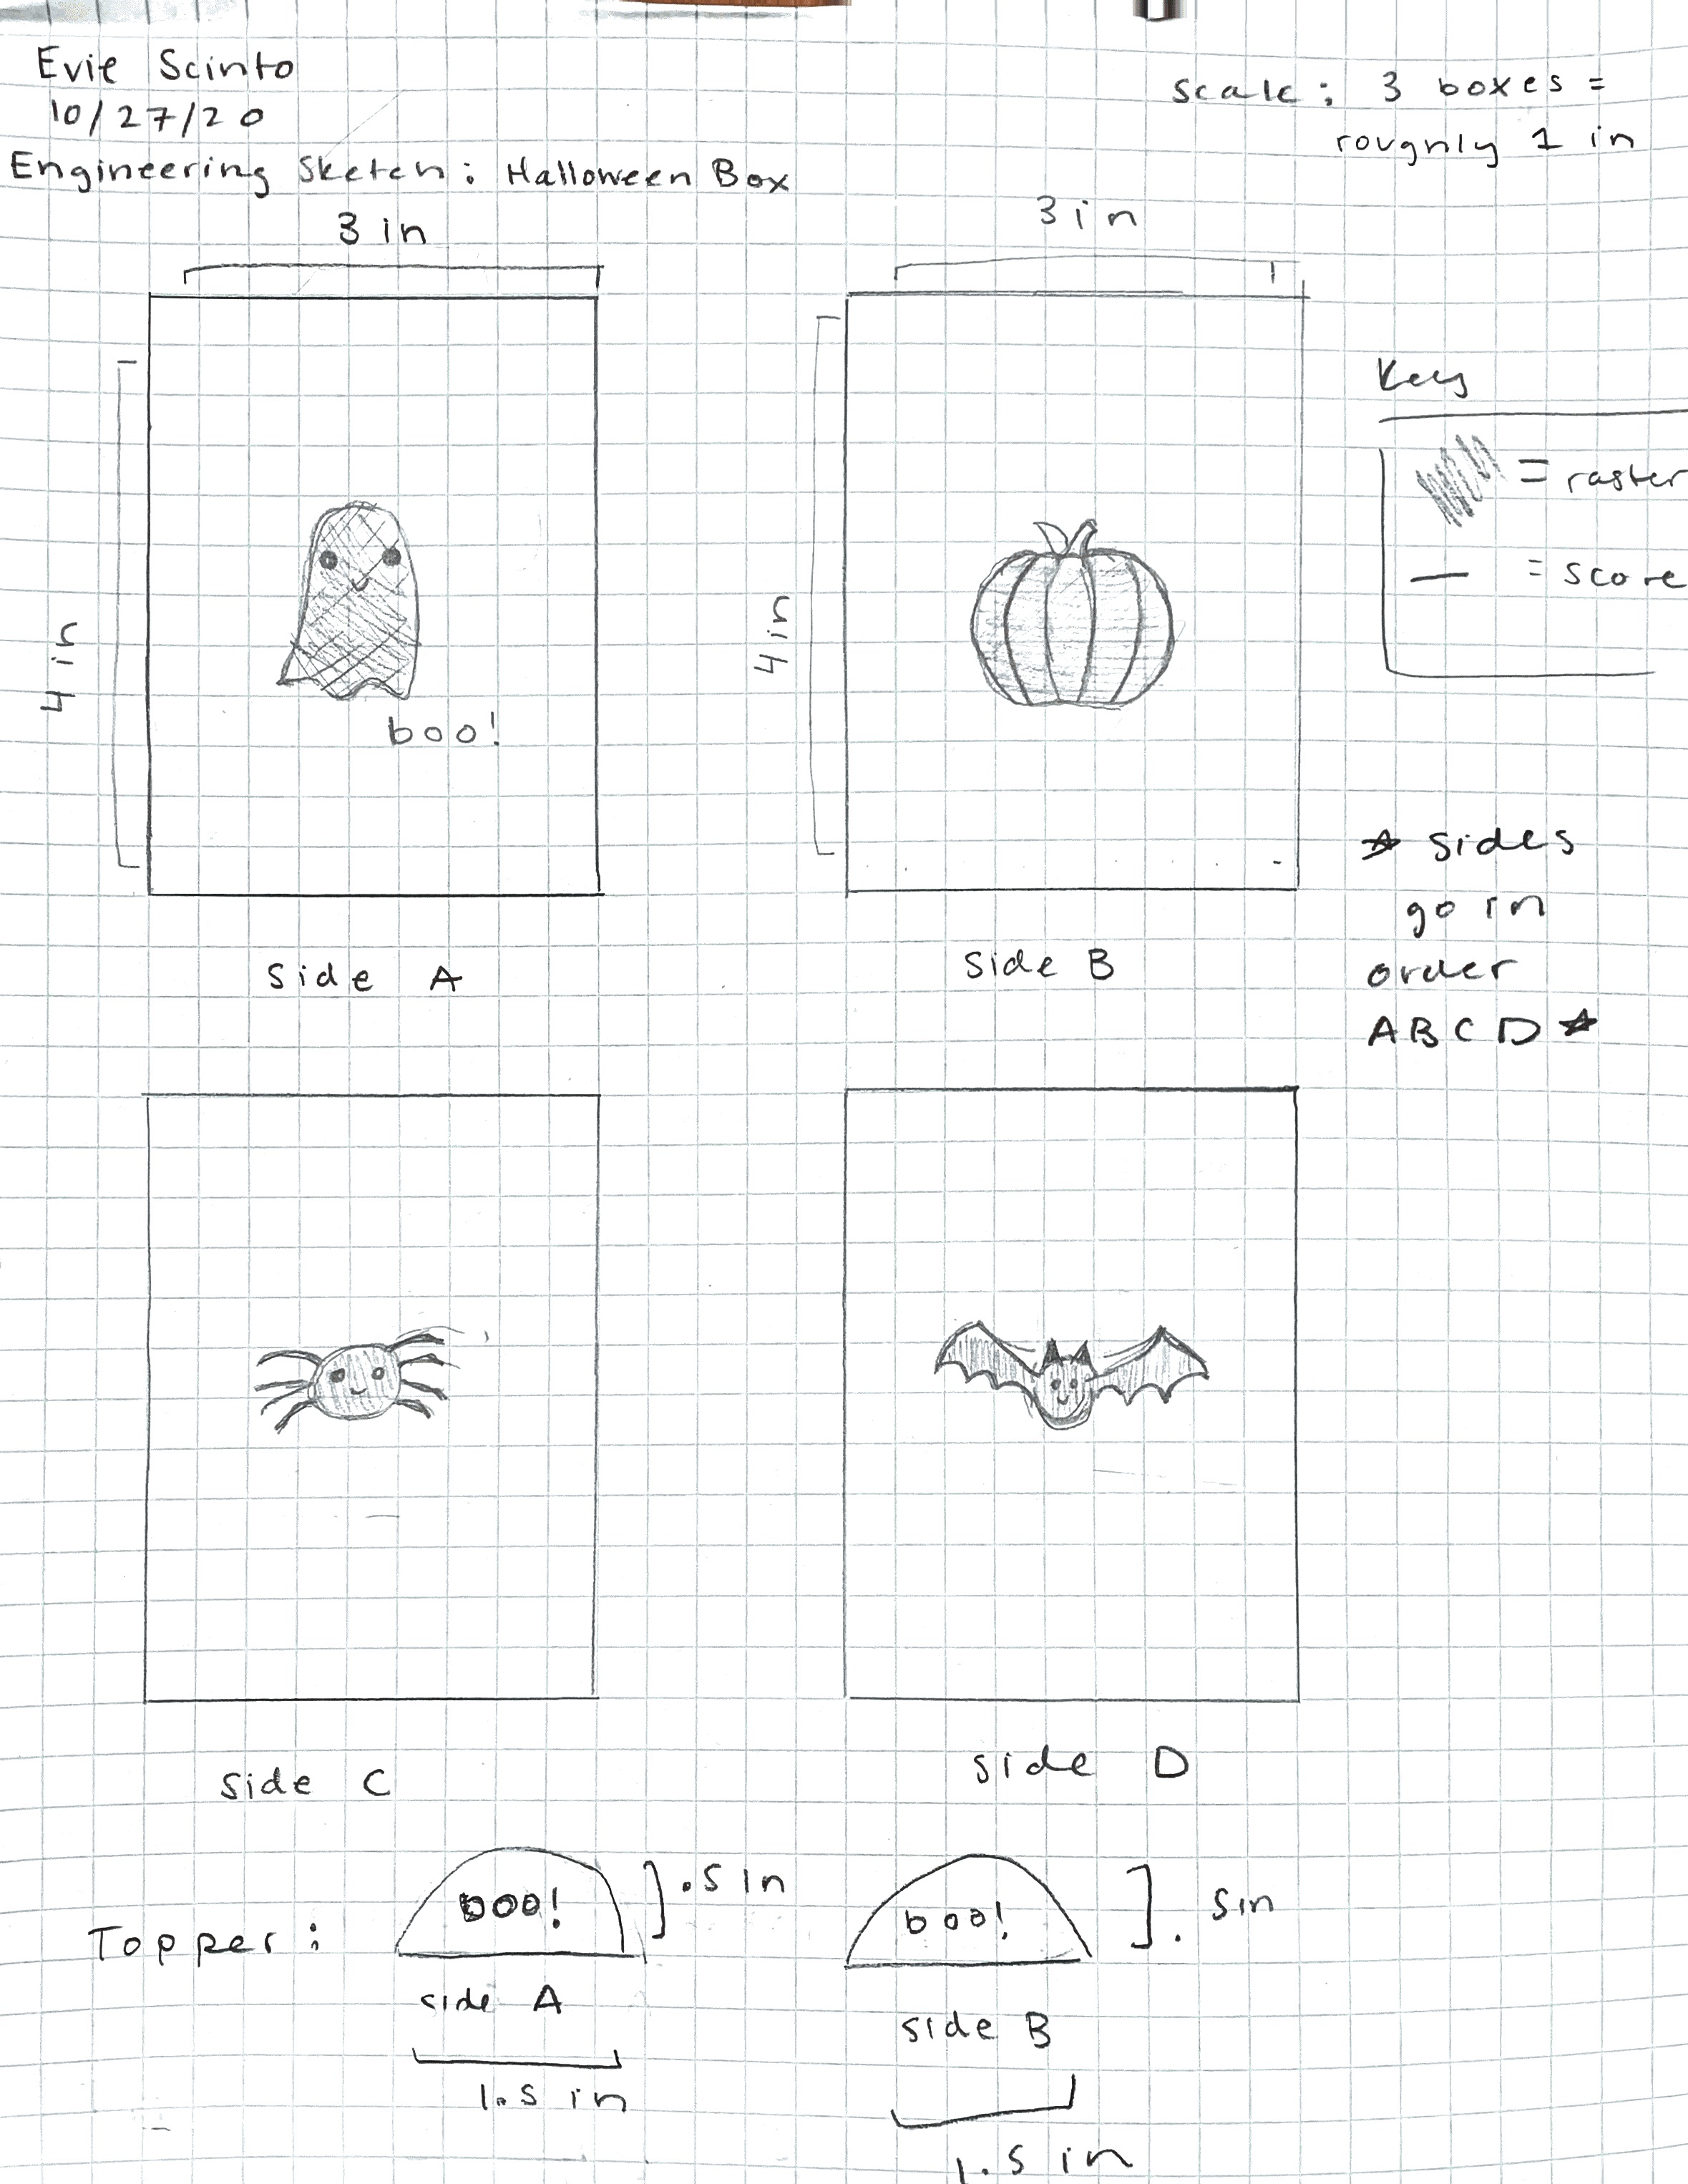 Evie Scinto
10/27/20
Engineering Sketch: Halloween Box
scale: 3 boxes =
roughly 1 in
3 in
3 in
4 in
boo!
4 in
Key
= raster
= score
Side A
Side B
☆ sides
go in
order
ABCD ☆
side C
side D
Topper:
boo!
.5 in
side A
1.5 in
boo!
.5in
side B
1.5 in